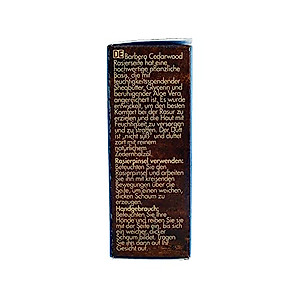 DE Barberg Cedarwood
Rasierseife hat eine
hochwertige pflanzliche
Basis, die mit
feuchtigkeitsspendender
Sheabutter, Glycerin und
beruhigender Aloe Vera
angereichert ist. Es wurde
entwickelt, um den besten
Komfort bei der Rasur zu
erzielen und die Haut mit
Feuchtigkeit zu versorgen
und zu straffen. Der Duft ist
„nicht süß" und duftet
zart mit reinem
natürlichem
Zedernholzöl.
Rasierpinsel verwenden:
Befeuchten Sie den
Rasierpinsel und arbeiten
Sie ihn mit kreisenden
Bewegungen über die
Seife, um einen weichen,
dicken Schaum zu
erzeugen.
Handgebrauch:
Befeuchten Sie Ihre
Hände und reiben Sie sie
mit der Seife ein, bis sich
ein weicher, dicker
Schaum bildet. Tragen
Sie ihn dann auf Ihr
Gesicht auf.